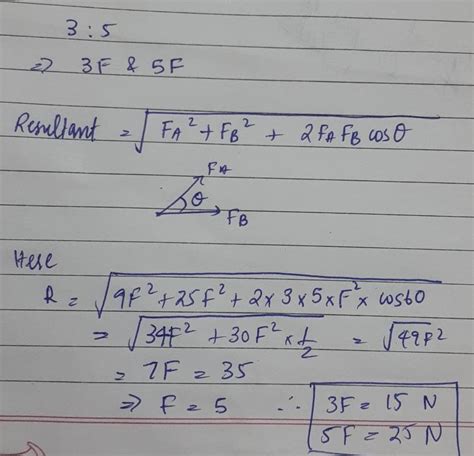 3 : 5
⇒ 3F & 5F
Resultant = √(FA² + FB² + 2FAFB cosθ)
FA
θ
FB
Here
R = √(9F² + 25F² + 2×3×5×F²× cos60)
= √(34F² + 30F² × 1/2) = √(49F²)
= 7F = 35
⇒ F = 5 ∴ 3F = 15 N
5F = 25 N